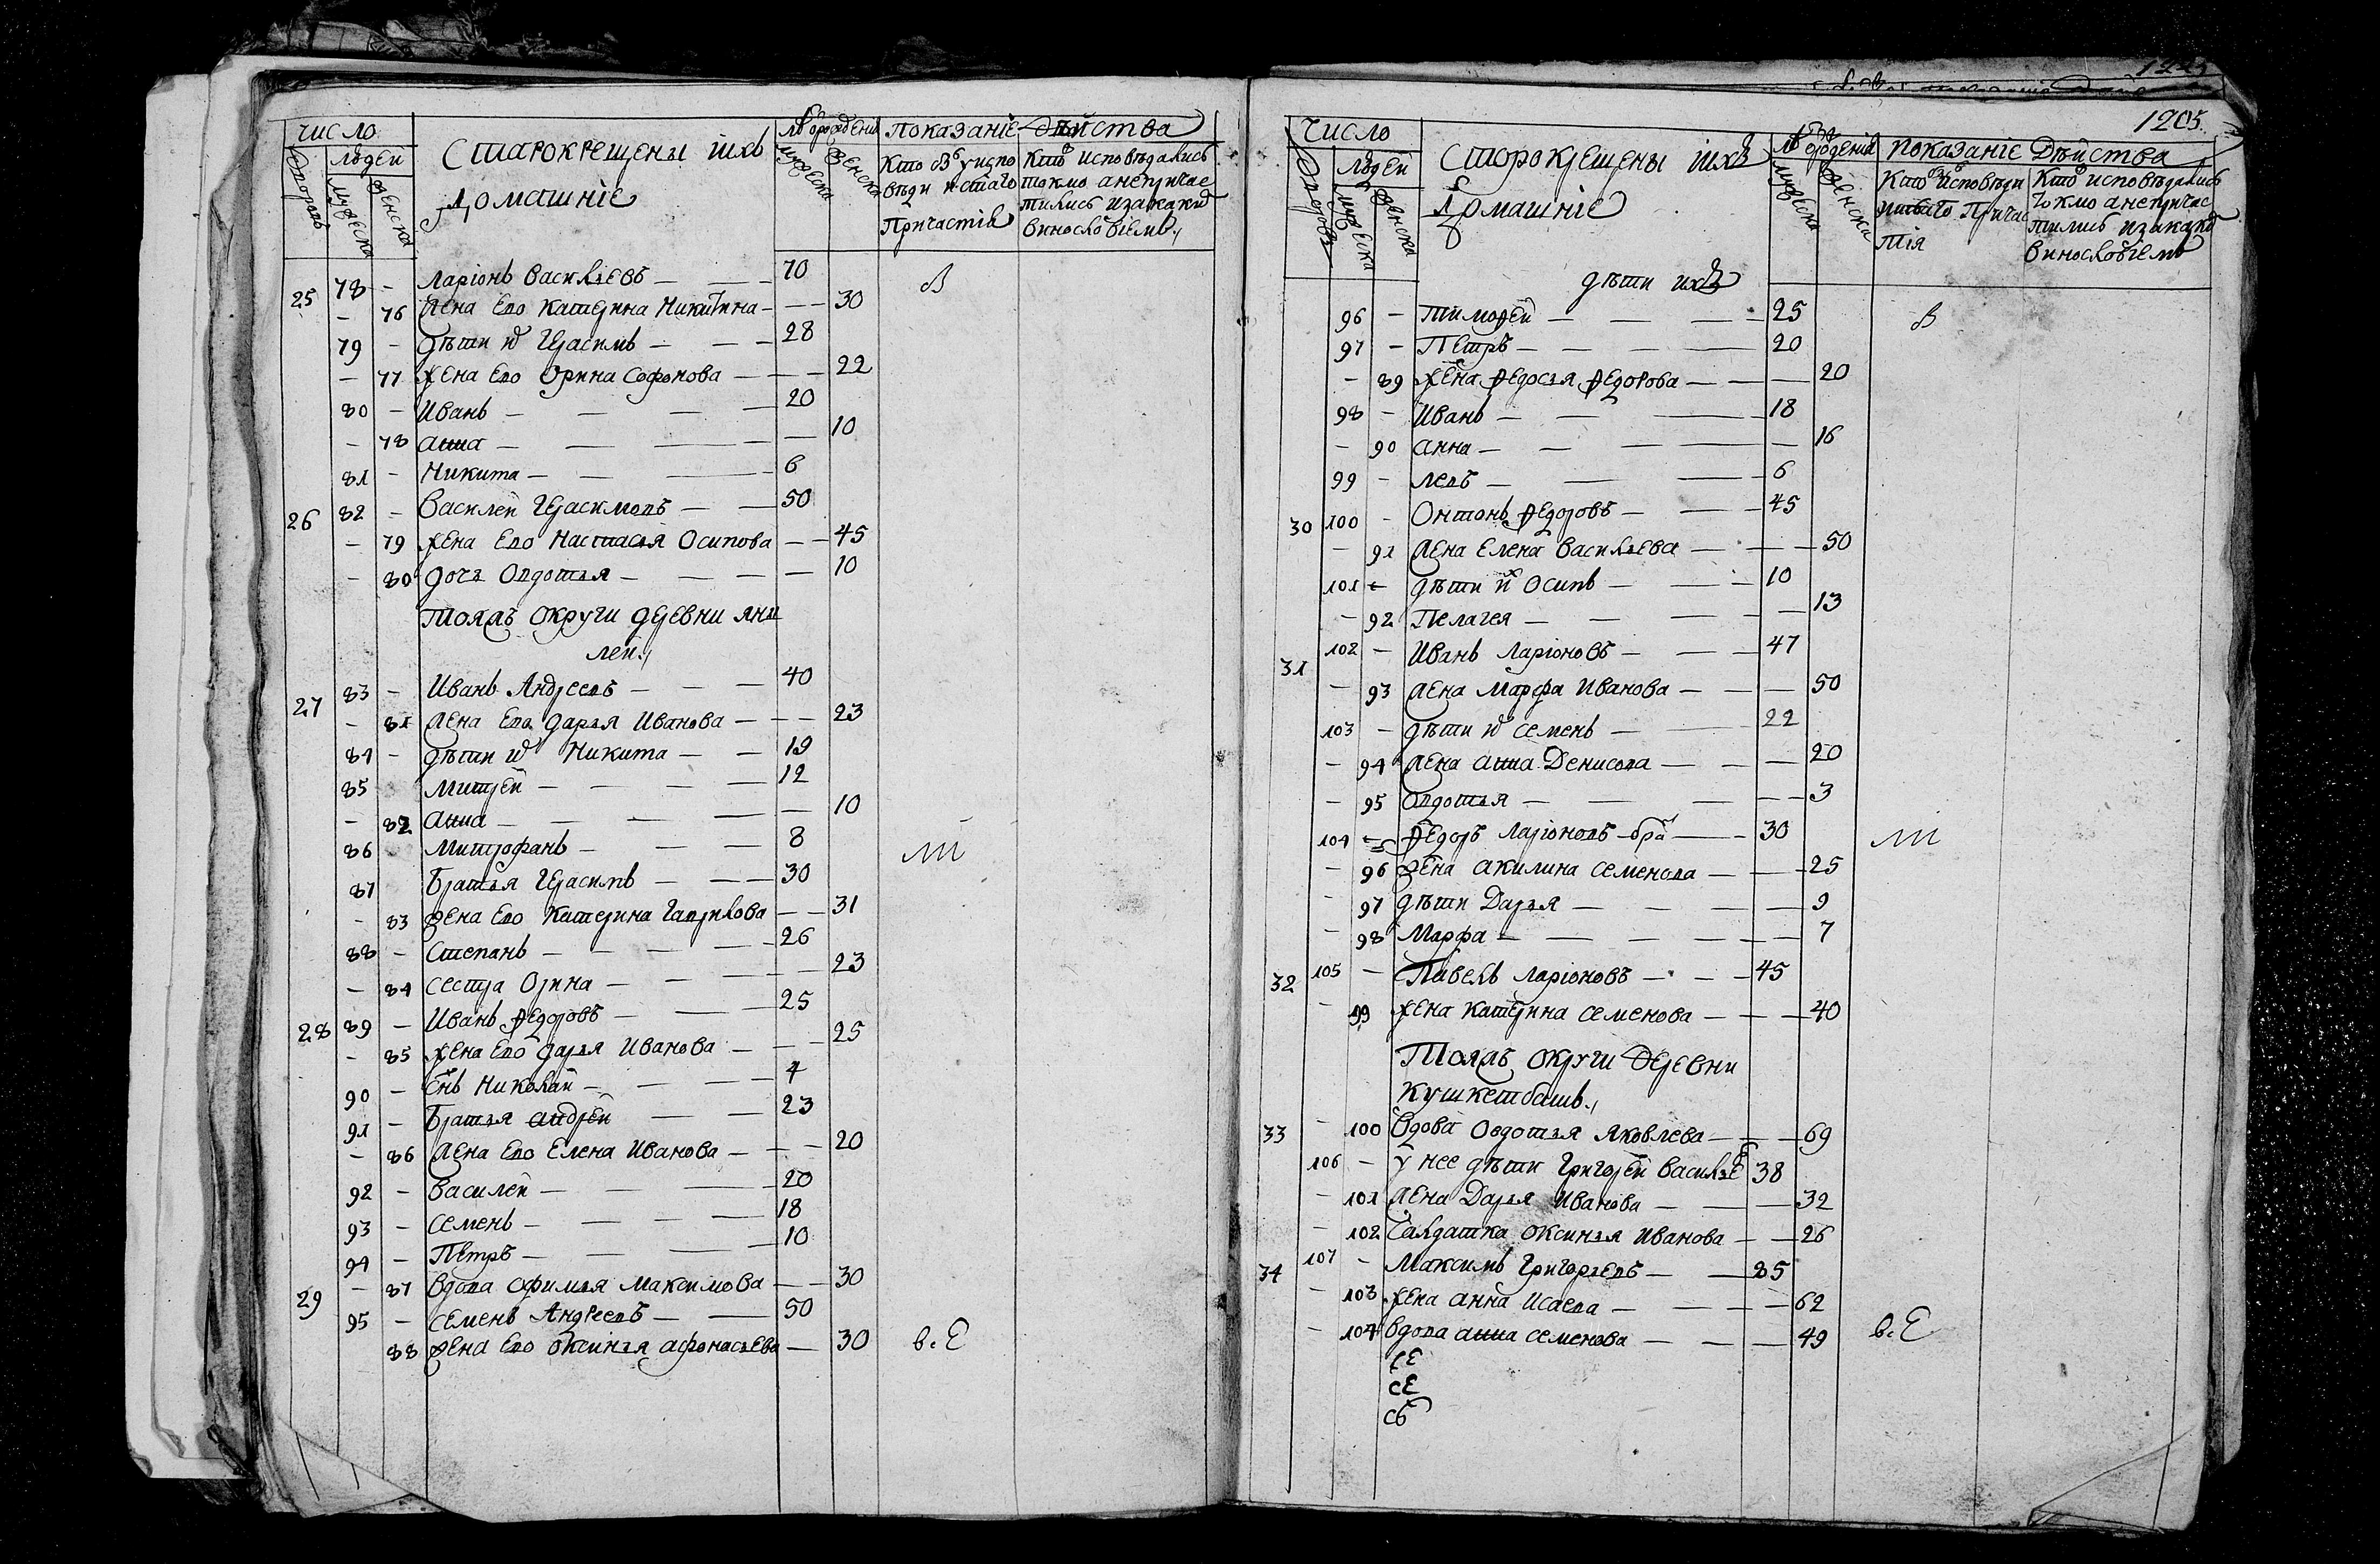 число
людей
дворовъ
мужеска
женска
Старокрещены ихъ
Домашніе
мужеска
женска
показаніе действа
Кто былъ у испо
веди и стаго
Причастія
Кто исповедались
токмо а непричас
тились и за каки
винословіемъ
25 78 - Ларіонъ Васильевъ 70 В
- 76 Жена Ево Катерина Никитина 30
79 - дети и Герасимъ 28
- 77 Жена Ево Орина Софонова 22
80 - Иванъ 20
- 78 анна 10
81 - Никита 6
26 82 - Василей Герасимовъ 50
- 79 Жена Ево Настасья Осипова 45
- 80 дочь Овдотья 10
Тояжъ округи деревни Яны
лей
27 83 - Иванъ Андреевъ 40
- 81 Жена Ево дарья Иванова 23
84 - дети и Никита 19
85 Митрей 12
- 82 анна 10
86 Митрофанъ 8 ли
87 Братья Герасимъ 30
- 83 Жена Ево Катерина Гаврилова 31
88 - Степанъ 26
- 84 сестра Орина 23
28 89 - Иванъ Федоровъ 25
- 85 Жена Ево дарья Иванова 25
90 - Снъ Николай 4
91 - Братья андрей 23
- 86 Жена Ево Елена Иванова 20
92 - Василей 20
93 - семенъ 18
94 - Петръ 10
29 - 87 вдова офимья Максимова 30
95 - Семенъ Андреевъ 50
88 Жена Ево Оксинья афонасьева 30 в. Е
1205.
Число
людей
дворовъ
мужеска
женска
Старокрещены ихъ
Домашніе
мужеска
женска
показаніе Действа
Кто исповеди
Причас
тія
Кто исповедались
токмо а непричас
тились и за каки
винословіемъ
дети ихъ
96 - Тимофей 25 В
97 - Петръ 20
- 89 Жена Федосья Федорова 20
98 - Иванъ 18
- 90 анна 16
99 - левъ 6
30 100 - Онтонъ Федоровъ 45
- 91 Жена Елена Васильева 50
101 - дети и Осипъ 10
- 92 Пелагея 13
31 102 - Иванъ Ларіоновъ 47
- 93 Жена Марфа Иванова 50
103 - дети и семенъ 22
- 94 Жена анна Денисова 20
- 95 Овдотья 3
104 - Федоръ Ларіоновъ бра 30 ли
- 96 Жена акилина семенова 25
- 97 дети Дарья 9
- 98 Марфа 7
32 105 - Павелъ Ларіоновъ 45
- 99 Жена Катерина семенова 40
Тояжъ округи деревни
Кушкетбашъ
33 - 100 вдова Овдотья Яковлева 69
106 - у нее дети Григорей Василье 38
- 101 Жена Дарья Иванова 32
- 102 Салдатка Оксинья Иванова 26
34 107 - Максимъ Григорьевъ 85
- 103 Жена анна Исаева 62
- 104 вдова анна семенова 49 в. Е